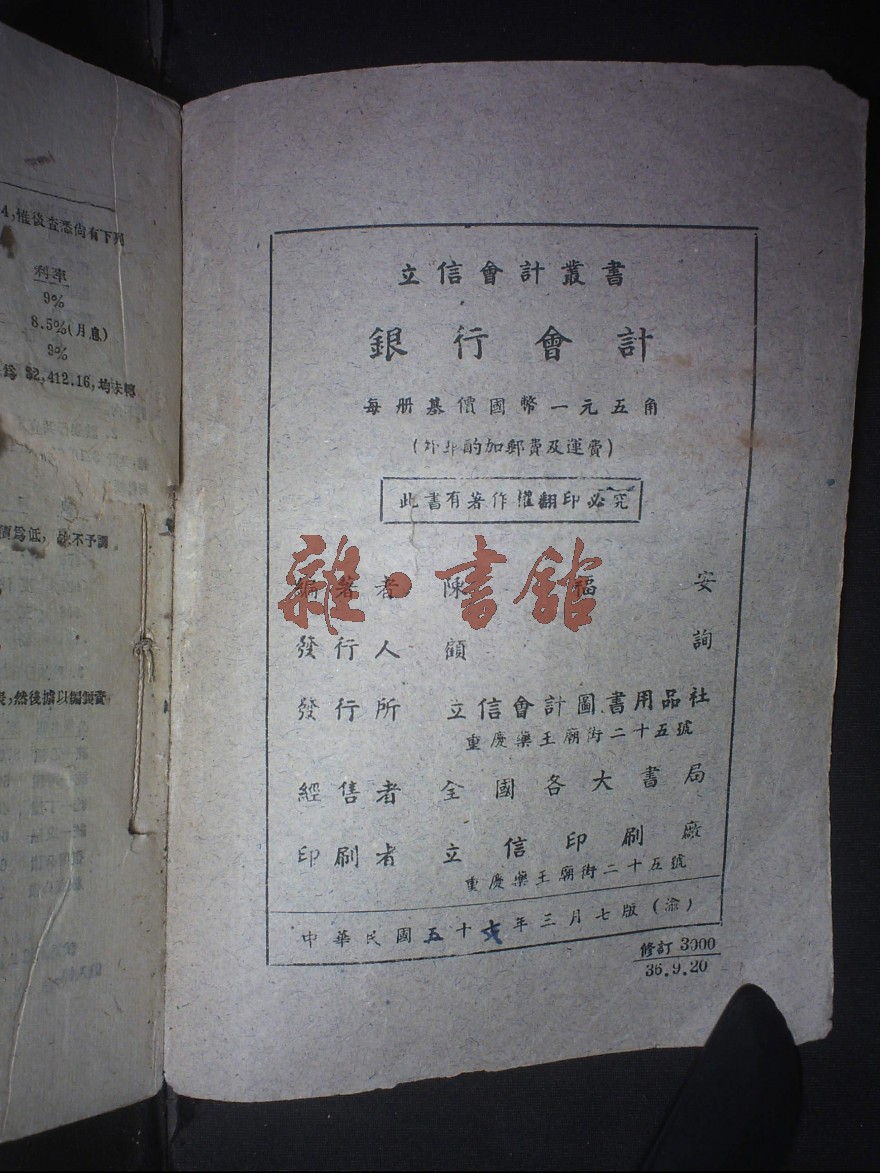 4,惟後查悉尚有下列
利率
9%
8.5%(月息)
9%
爲 $2,412.16,均未轉
價爲低,故不予調
然後據以編製資
立信會計叢書
銀行會計
每册基價國幣一元五角
(外埠酌加郵費及運費)
此書有著作權翻印必究
雜·書館
編著者 陳福安
發行人 顧詢
發行所 立信會計圖書用品社
重慶藥王廟街二十五號
經售者 全國各大書局
印刷者 立信印刷廠
重慶藥王廟街二十五號
中華民國五十六年三月七版(渝)
修訂 3000
36.9.20